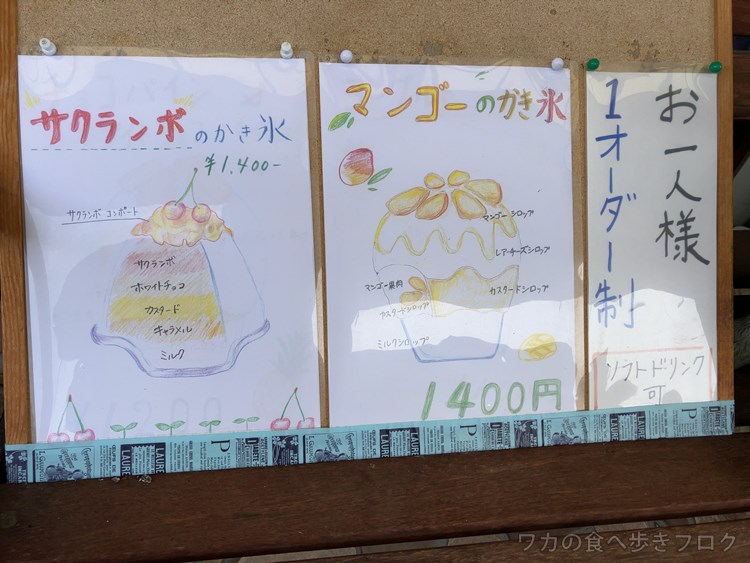 サクランボのかき氷
¥1,400-
サクランボ コンポート
サクランボ
ホワイトチョコ
カスタード
キャラメル
ミルク
マンゴーのかき氷
マンゴーシロップ
レアチーズシロップ
マンゴー果肉
カスタードシロップ
カスタードシロップ
ミルクシロップ
1400円
お一人様
1オーダー制
ソフトドリンク
可
ワカの食べ歩きブログ